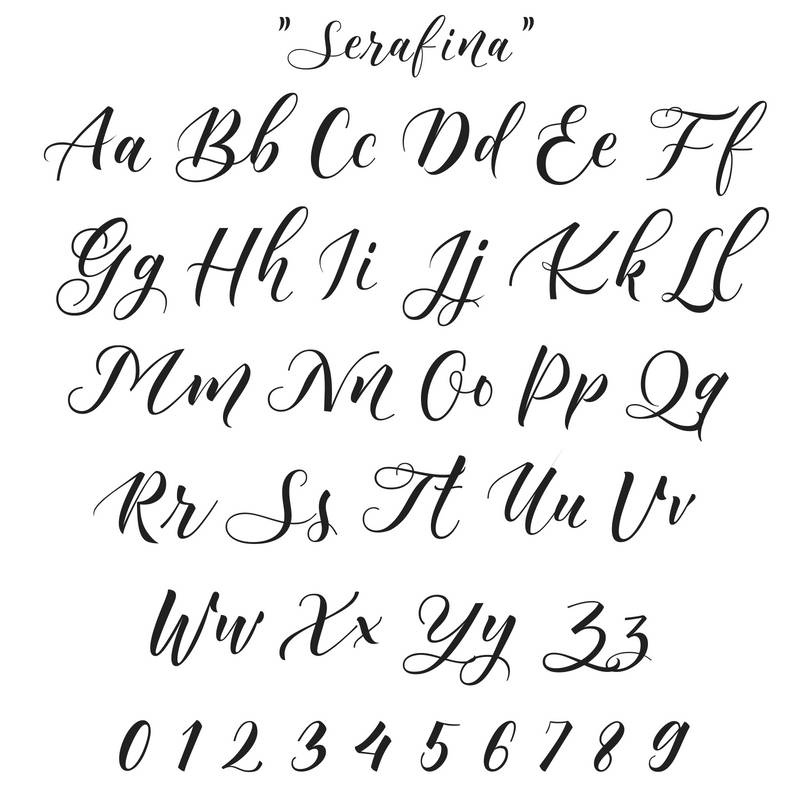 "Serafina"
Aa Bb Cc Dd Ee Ff
Gg Hh Ii Jj Kk Ll
Mm Nn Oo Pp Qq
Rr Ss Tt Uu Vv
Ww Xx Yy Zz
0 1 2 3 4 5 6 7 8 9